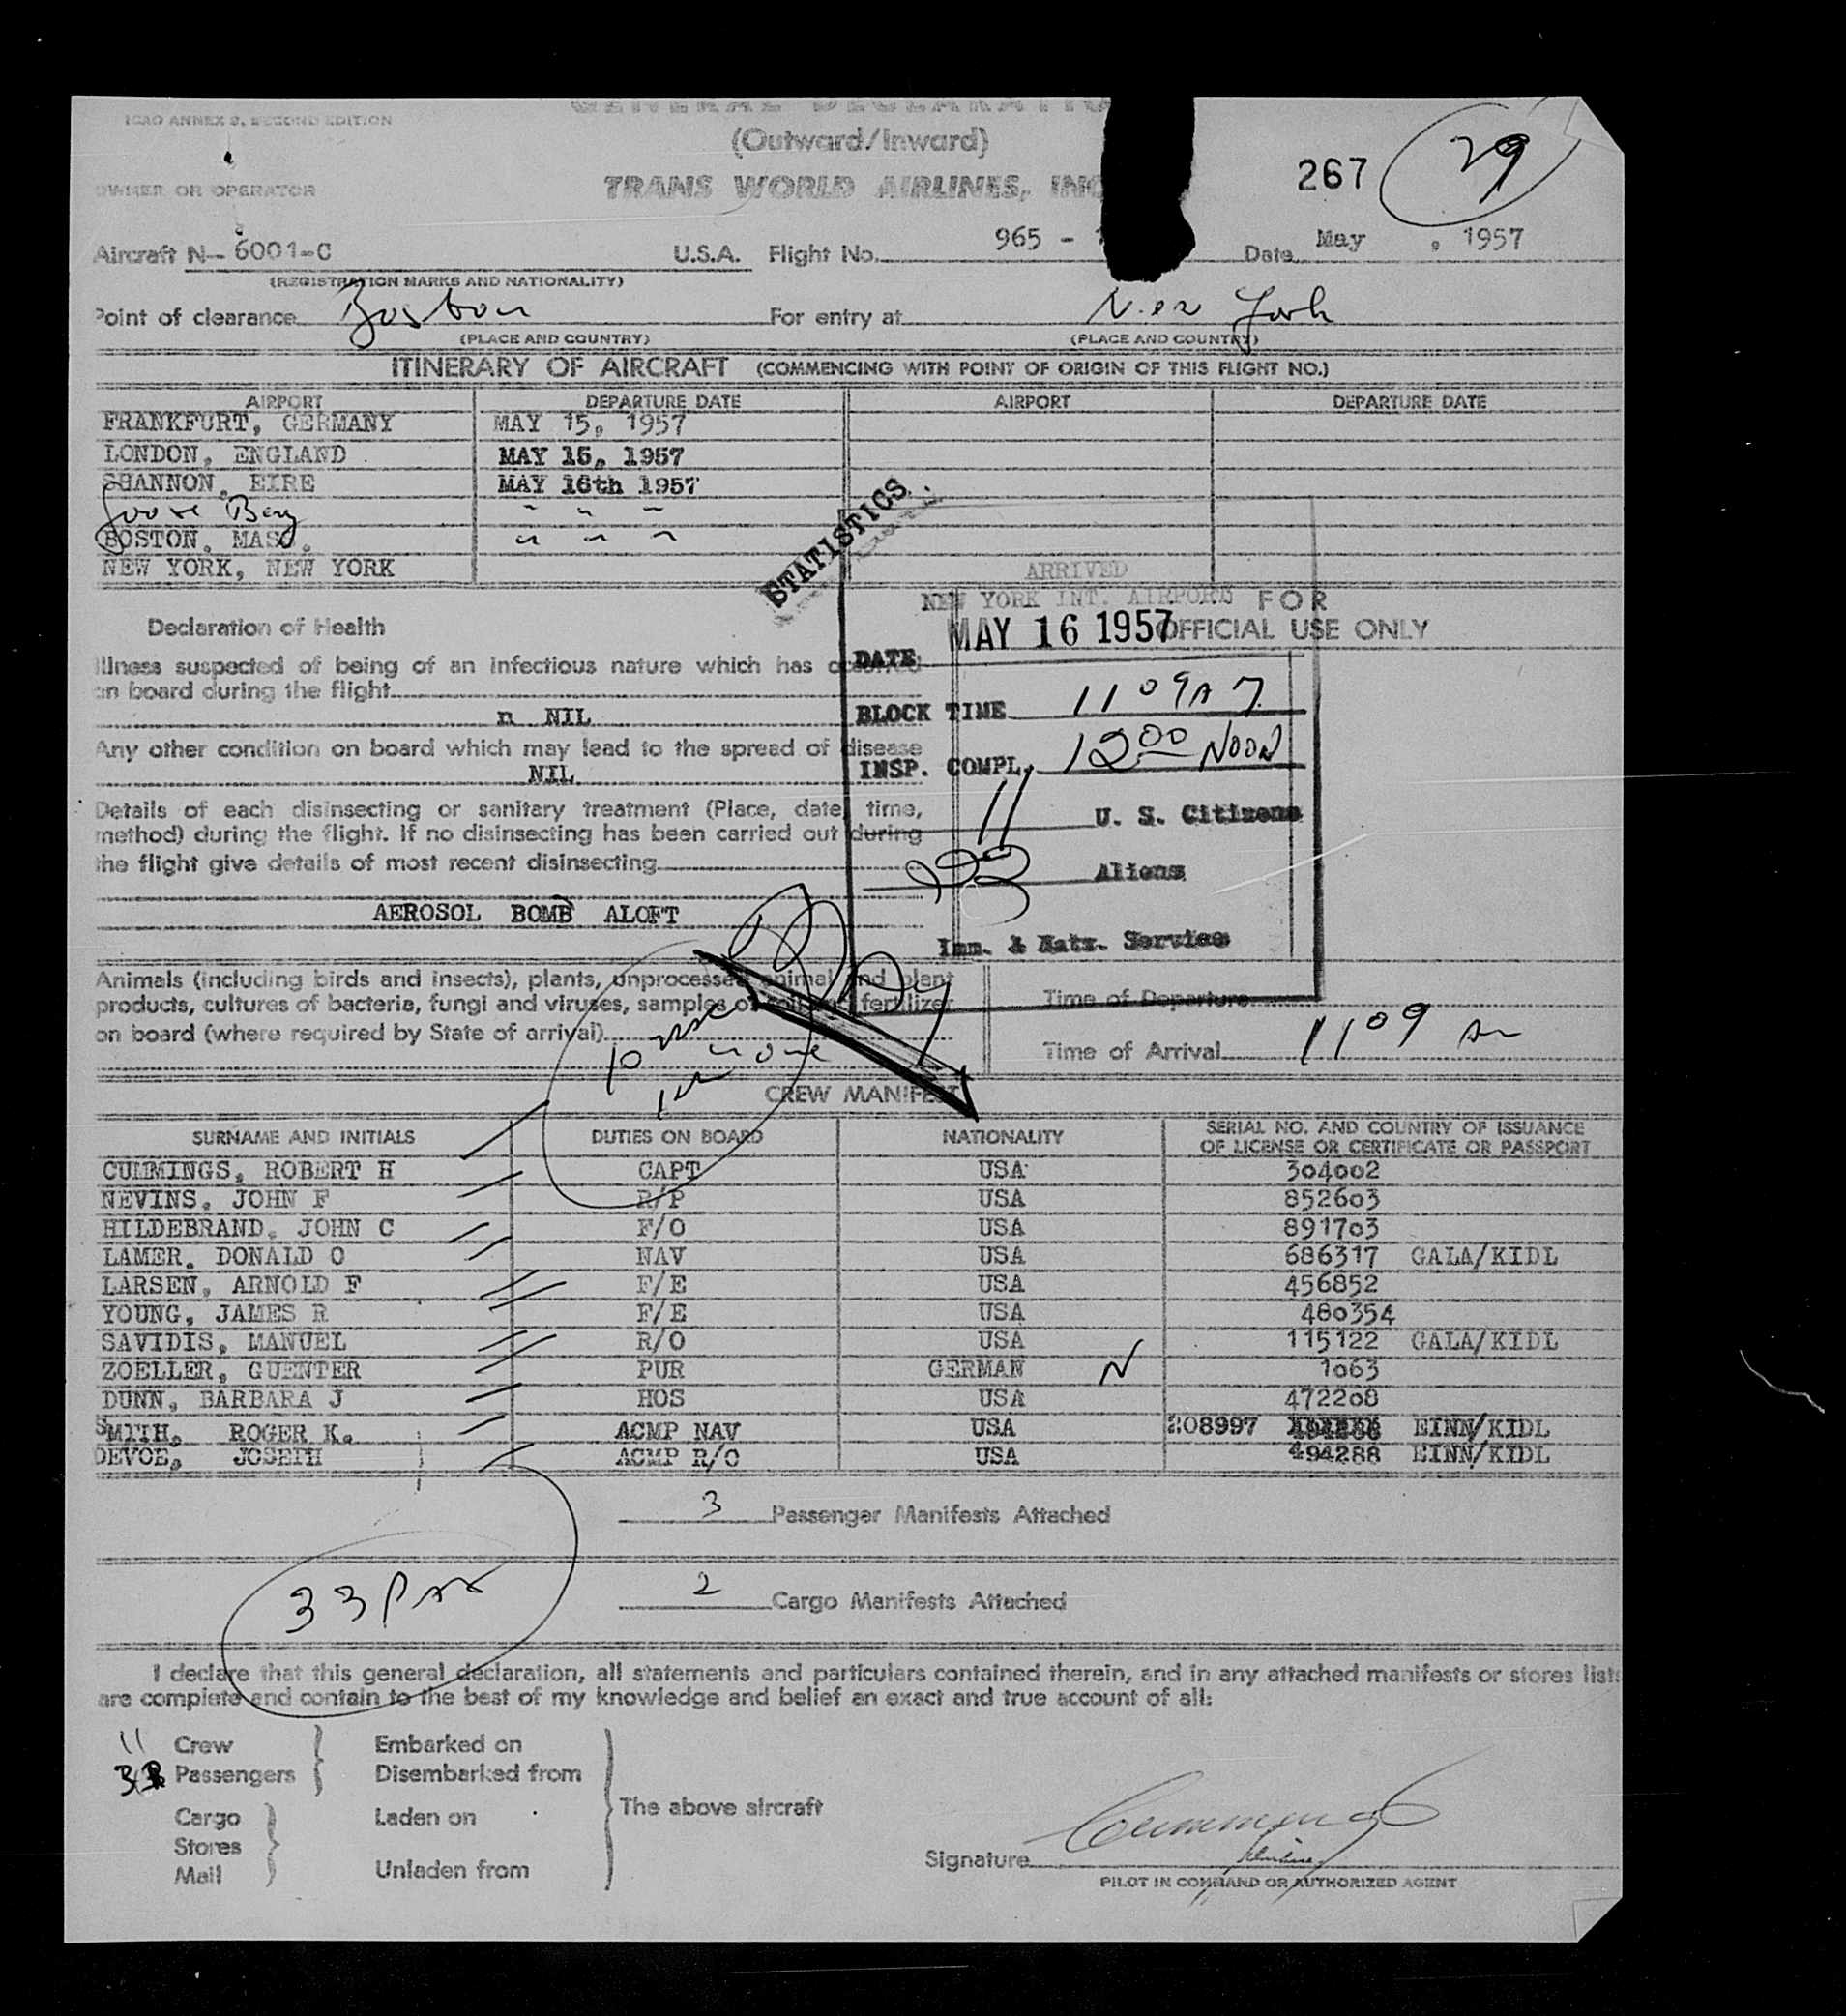 ICAO ANNEX 9, SECOND EDITION
GENERAL DECLARATIO
(Outward/Inward)
267 29
OWNER OR OPERATOR TRANS WORLD AIRLINES, INC
Aircraft N- 6001-C U.S.A. Flight No. 965 - Date May , 1957
(REGISTRATION MARKS AND NATIONALITY)
Point of clearance Boston For entry at New York
(PLACE AND COUNTRY) (PLACE AND COUNTRY)
ITINERARY OF AIRCRAFT (COMMENCING WITH POINT OF ORIGIN OF THIS FLIGHT NO.)
AIRPORT DEPARTURE DATE AIRPORT DEPARTURE DATE
FRANKFURT, GERMANY MAY 15, 1957
LONDON, ENGLAND MAY 15, 1957
SHANNON, EIRE MAY 16th 1957
Goose Bay " " "
BOSTON, MASS. " " "
NEW YORK, NEW YORK
STATISTICS
ARRIVED
NEW YORK INT. AIRPORT
MAY 16 1957
FOR
OFFICIAL USE ONLY
Declaration of Health
Illness suspected of being of an infectious nature which has occurred
on board during the flight
n NIL
Any other condition on board which may lead to the spread of disease
NIL
Details of each disinsecting or sanitary treatment (Place, date, time,
method) during the flight. If no disinsecting has been carried out during
the flight give details of most recent disinsecting
AEROSOL BOMB ALOFT
DATE
BLOCK TIME 1109 A
INSP. COMPL. 12 00 NOON
11 U. S. Citizens
Aliens
Imm. & Natz. Service
Animals (including birds and insects), plants, unprocessed animal and plant
products, cultures of bacteria, fungi and viruses, samples of soil and fertilizer
on board (where required by State of arrival)
none
Time of Departure
Time of Arrival 1109 Am
CREW MANIFEST
SURNAME AND INITIALS DUTIES ON BOARD NATIONALITY SERIAL NO. AND COUNTRY OF ISSUANCE
OF LICENSE OR CERTIFICATE OR PASSPORT
CUMMINGS, ROBERT H CAPT USA 304002
NEVINS, JOHN F R/P USA 852603
HILDEBRAND, JOHN C F/O USA 891703
LAMER, DONALD O NAV USA 686317 GALA/KIDL
LARSEN, ARNOLD F F/E USA 456852
YOUNG, JAMES R F/E USA 480354
SAVIDIS, MANUEL R/O USA 115122 GALA/KIDL
ZOELLER, GUENTER PUR GERMAN N 1063
DUNN, BARBARA J HOS USA 472208
SMITH, ROGER K. ACMP NAV USA 208997 EINN/KIDL
DEVOE, JOSETH ACMP R/O USA 494288 EINN/KIDL
3 Passenger Manifests Attached
33 Pax
2 Cargo Manifests Attached
I declare that this general declaration, all statements and particulars contained therein, and in any attached manifests or stores lists
are complete and contain to the best of my knowledge and belief an exact and true account of all:
11 Crew Embarked on
Passengers Disembarked from
The above aircraft
Cargo Laden on
Stores
Mail Unladen from
Signature Cummings
PILOT IN COMMAND OR AUTHORIZED AGENT